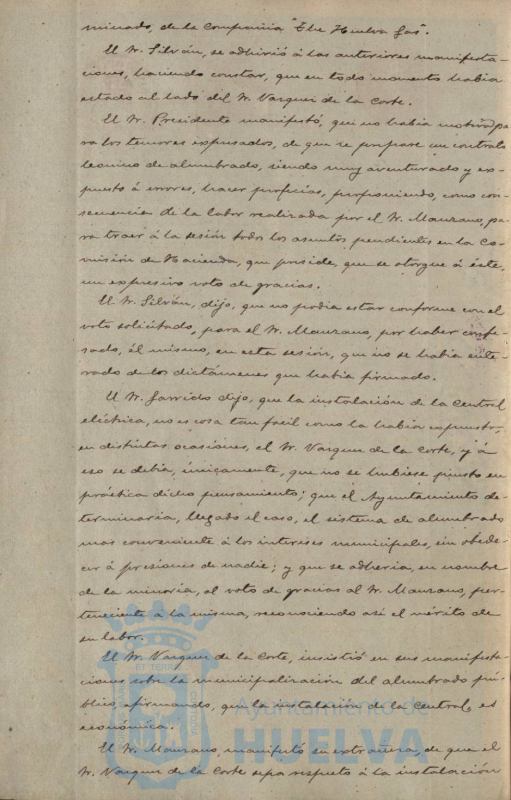 minado, de la Compañia "The Huelva Gas".
El Sr. Silván, se adhirió á las anteriores manifesta-
ciones, haciendo constar, que en todo momento habia
estado al lado del Sr. Vazquez de la Corte.
El Sr. Presidente manifestó, que no habia motivo pa-
ra los temores expresados, de que se prepare un contrato
leonino de alumbrado, siendo muy aventurado y ex-
puesto á errores, hacer profecias, proponiendo, como con-
secuencia de la labor realizada por el Sr. Manzano, pa-
ra traer á la sesión todos los asuntos pendientes en la Co-
misión de Hacienda, que preside, que se otorgue á éste,
un expresivo voto de gracias.
El Sr. Silván, dijo, que no podia estar conforme con el
voto solicitado, para el Sr. Manzano, por haber confe-
sado, él mismo, en esta sesión, que no se habia ente-
rado de los dictámenes que habia firmado.
El Sr. Garrido dijo, que la instalación de la Central
eléctrica, no es cosa tan facil como la habia expuesto,
en distintas ocasiones, el Sr. Vazquez de la Corte, y á
eso se debia, únicamente, que no se hubiese puesto en
práctica dicho pensamiento; que el Ayuntamiento de-
terminaria, llegado el caso, el sistema de alumbrado
mas conveniente á los intereses municipales, sin obede-
cer á presiones de nadie; y que se adheria, en nombre
de la minoria, al voto de gracias al Sr. Manzano, per-
teneciente á la misma, reconociendo asi el mérito de
su labor.
El Sr. Vazquez de la Corte, insistió en sus manifesta-
ciones sobre la municipalización del alumbrado pú-
blico, afirmando, que la instalación de la Central, es
económica.
El Sr. Manzano, manifestó su extrañeza, de que el
Sr. Vazquez de la Corte sepa respeto á la instalación
Ayuntamiento de
HUELVA